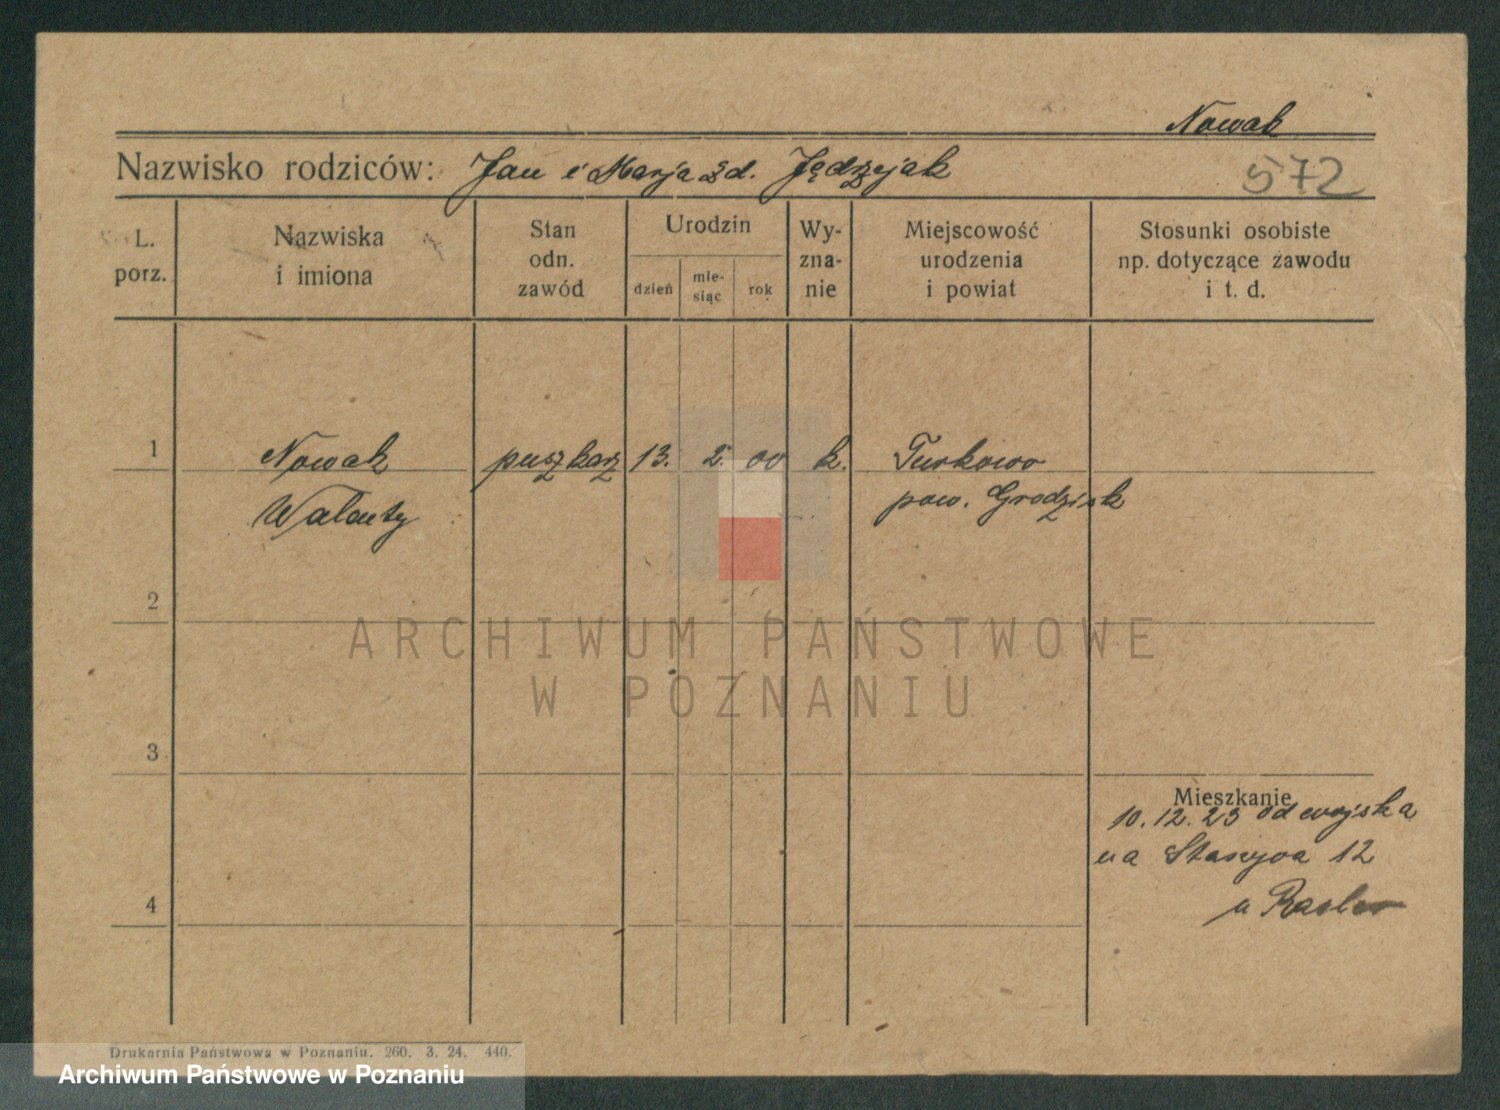 Nowak
Nazwisko rodziców: Jan i Marja zd. Jędrzejak 572
L. porz.
Nazwiska i imiona
Stan odn. zawód
Urodzin
dzień
mie-siąc
rok
Wy-zna-nie
Miejscowość urodzenia i powiat
Stosunki osobiste np. dotyczące zawodu i t. d.
1 Nowak puszkarz 13. 2. 00 k. Turkowo
Walenty pow. Grodzisk
2
ARCHIWUM PAŃSTWOWE
W POZNANIU
3
Mieszkanie
10.12.23 od wojska
na 12
u
4
Drukarnia Państwowa w Poznaniu. 260. 3. 24. 440.
Archiwum Państwowe w Poznaniu